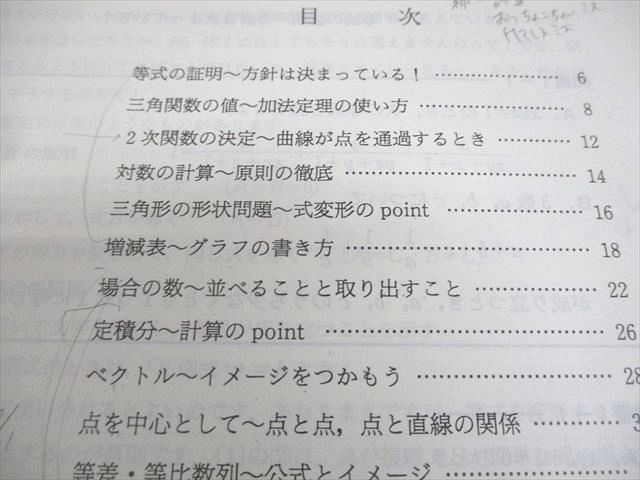 目 次
おっちょこちょいミス
等式の証明～方針は決まっている！ 6
三角関数の値～加法定理の使い方 8
２次関数の決定～曲線が点を通過するとき 12
対数の計算～原則の徹底 14
三角形の形状問題～式変形の point 16
増減表～グラフの書き方 18
場合の数～並べることと取り出すこと 22
定積分～計算の point 26
ベクトル～イメージをつかもう 28
点を中心として～点と点，点と直線の関係 3
等差・等比数列～公式とイメージ